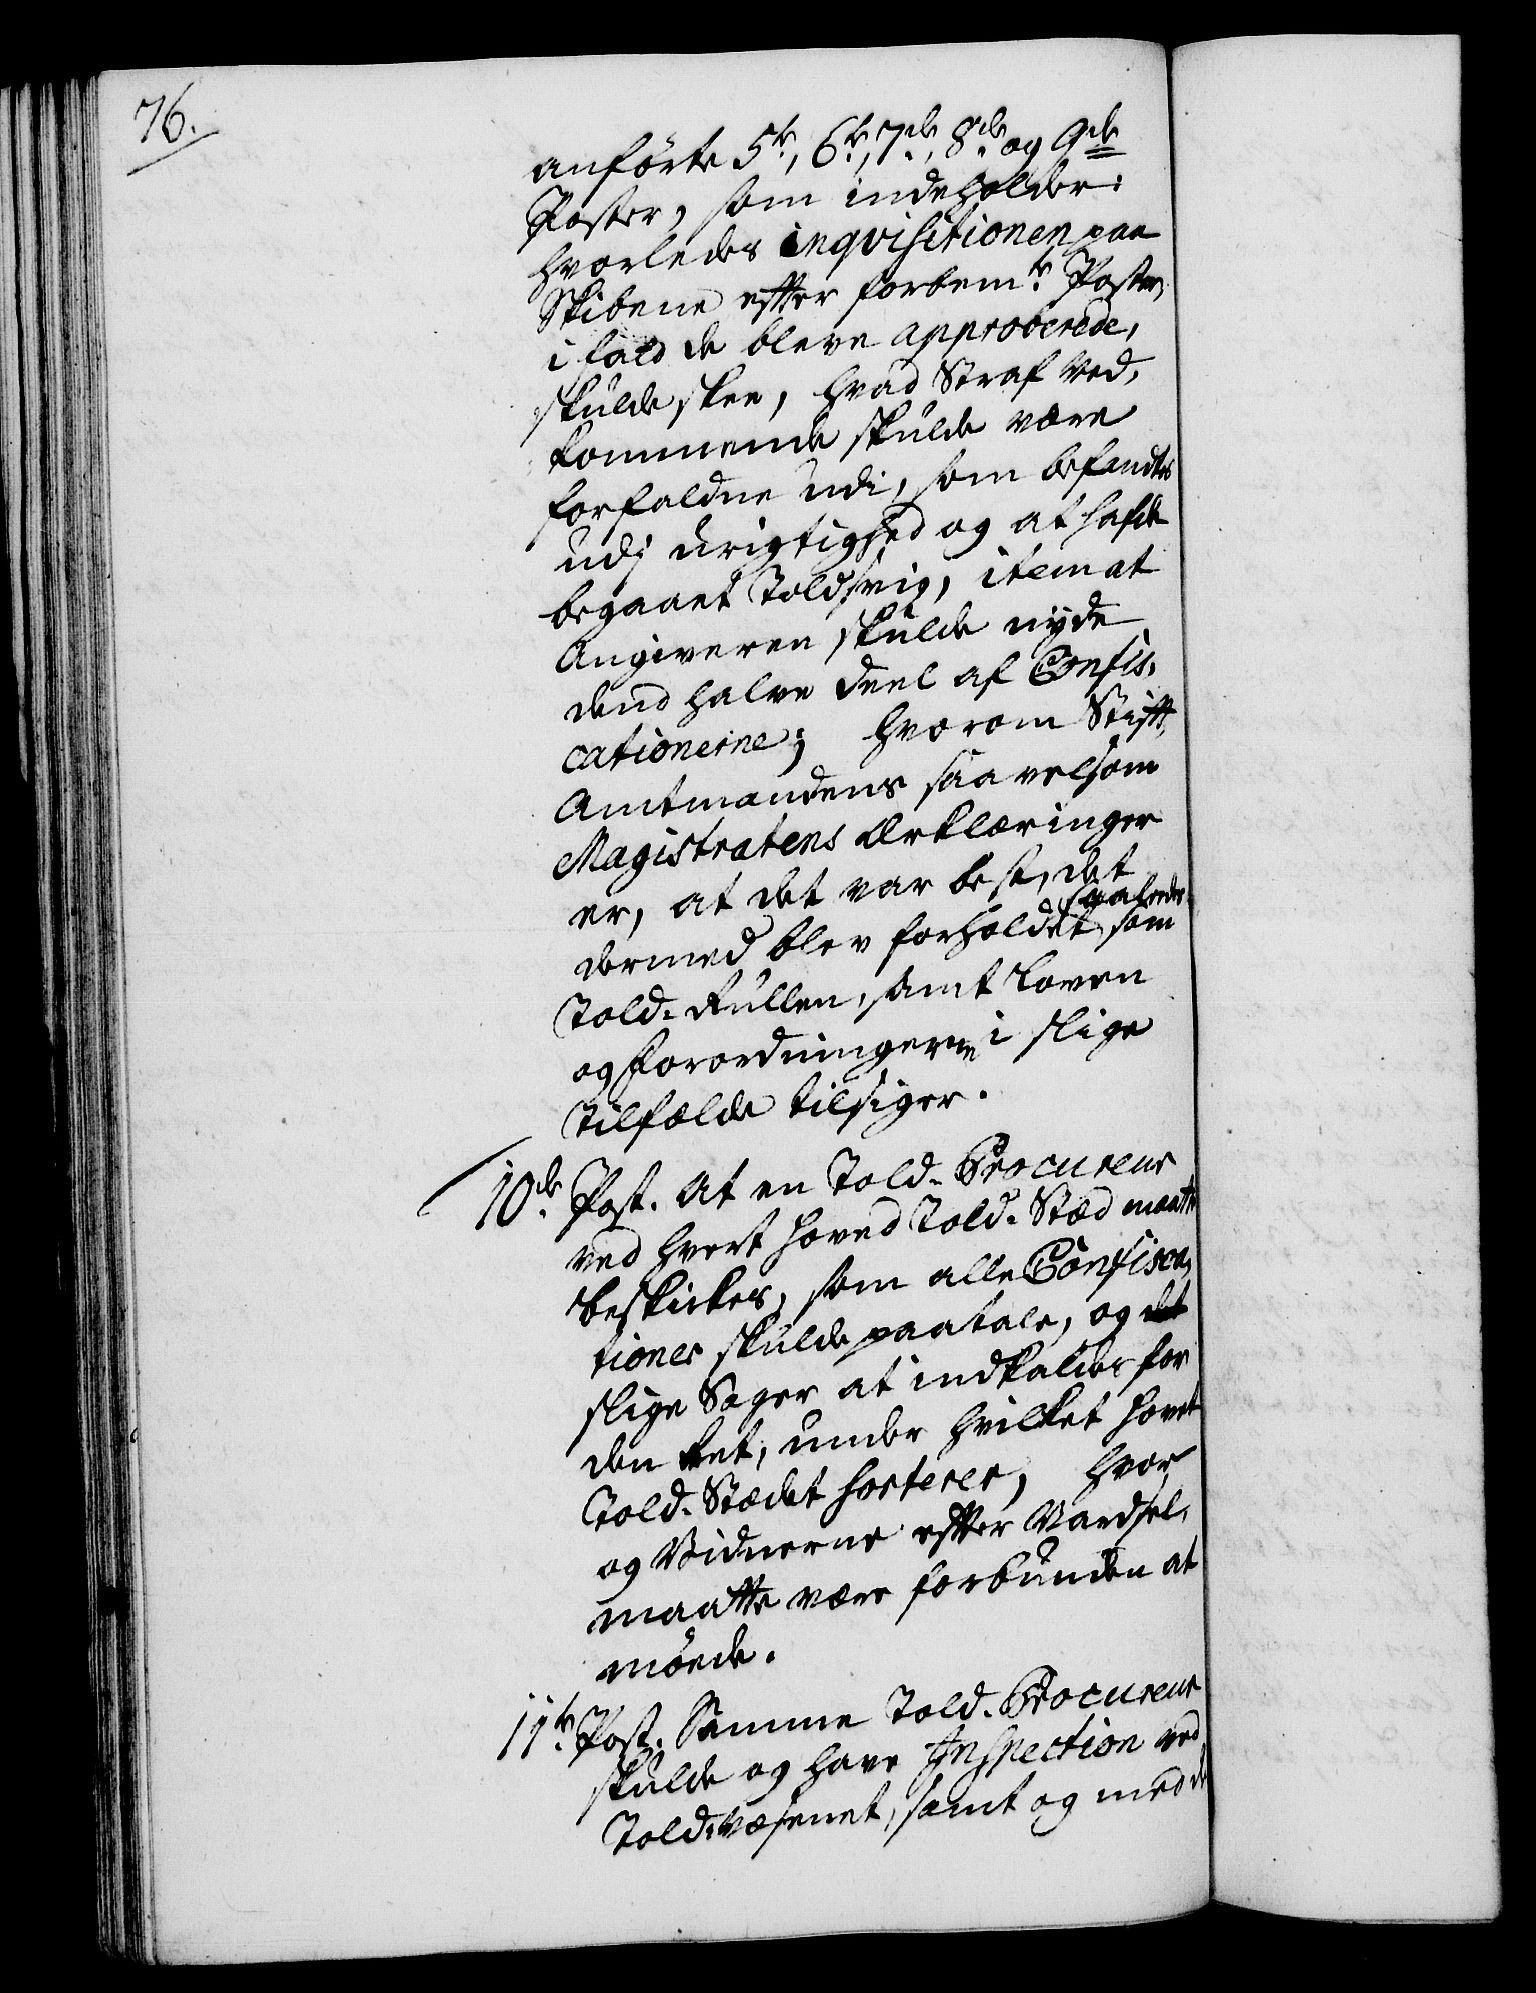 76.
anførte 5te, 6te, 7de, 8de og 9de
Poster, som indeholder:
hvorledes inqvisitionen paa
Skibene efter forbemte Poster,
i fald de bleve approberede,
skulde skee, hvad Straf Ved,
kommende skulde være
forfaldne udi, som befandtes
udj urigtighed og at hafde
begaaet Toldsvig, item at
Angiveren skulde nyde
dend halve Deel af Confis,
cationerne; hvorom Stift,
Amtmandens saavelsom
Magistratens Erklæringer
er, at det var best, det
dermed blev forholdet saaledes som
Told-Rullen, samt Loven
og Forordningerne i slige
Tilfælde tilsiger.
10de Post. At en Told-Procureur
ved hvert hoved Told-Stæd maatte
beskikkes, som alle Confisca,
tioner skulde paatale, og det
slige Sager at indkaldes for
den Ret, under hvilket hovet
Told-Stædet sorterer, hvor
og Vidnerne efter Vardsel,
maatte være forbunden at
møede.
11te Post. Samme Told-Procureur
skulde og have Inspection ved
Toldvæsenet, samt og med de